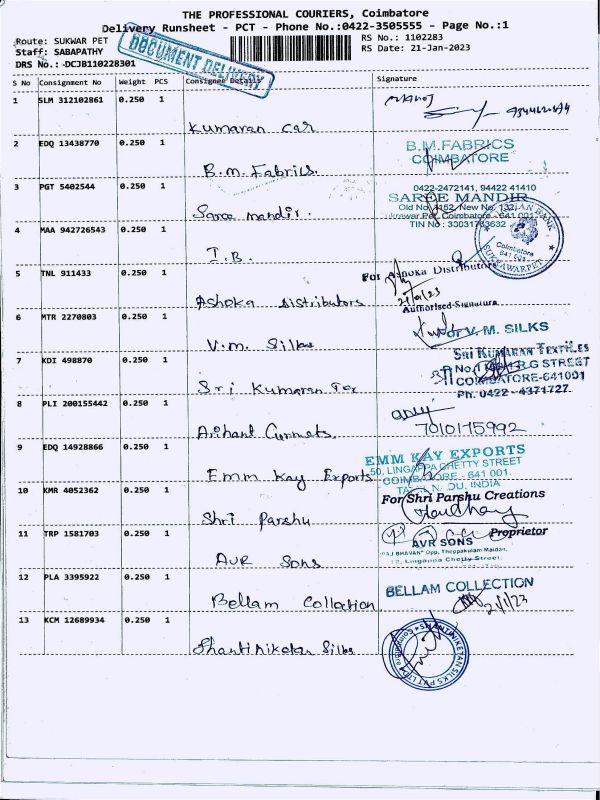 THE PROFESSIONAL COURIERS, Coimbatore
Delivery Runsheet - PCT - Phone No.:0422-3505555 - Page No.:1
Route: SUKWAR PET
RS No.: 1102283
Staff: SABAPATHY
RS Date: 21-Jan-2023
DRS No.: DCJB110228301
DOCUMENT DELIVERY
S No Consignment No Weight PCS Consignee Details Signature
1 SLM 312102861 0.250 1
Kumaran Car
2 EDQ 13438770 0.250 1
B.M.FABRICS
COIMBATORE
B.M. Fabrics.
3 PGT 5402544 0.250 1
0422-2472141, 94422 41410
SAREE MANDIR
Saree mandir.
4 MAA 942726543 0.250 1
Coimbatore
641 001
I.B.
5 TNL 911433 0.250 1
For Ashoka Distributors
21/01/23
Authorised Signature
Ashoka distributors
6 MTR 2270803 0.250 1
For V. M. SILKS
V.M. Silks
7 KDI 498870 0.250 1
SRI KUMARAN TEXTILES
COIMBATORE-641001
Ph: 0422 - 4371727
Sri Kumaran Tex
8 PLI 200155442 0.250 1
7010175992
Arihant Garments.
9 EDQ 14928866 0.250 1
EMM KAY EXPORTS
50, LINGAPPA CHETTY STREET
COIMBATORE - 641 001.
TAMIL NADU, INDIA
Emm Kay Exports
10 KMR 4052362 0.250 1
For Shri Parshu Creations
Shri Parshu
11 TRP 1581703 0.250 1
Proprietor
AVR SONS
"RAJ BHAVAN" Opp. Theppakulam Maidan,
12, Lingappa Chetty Street,
AVR Sons
12 PLA 3395922 0.250 1
BELLAM COLLECTION
21/1/23
Bellam Collation
13 KCM 12689934 0.250 1
SHANTINIKETAN SILKS PVT LTD
Coimbatore
Shantiniketan Silks